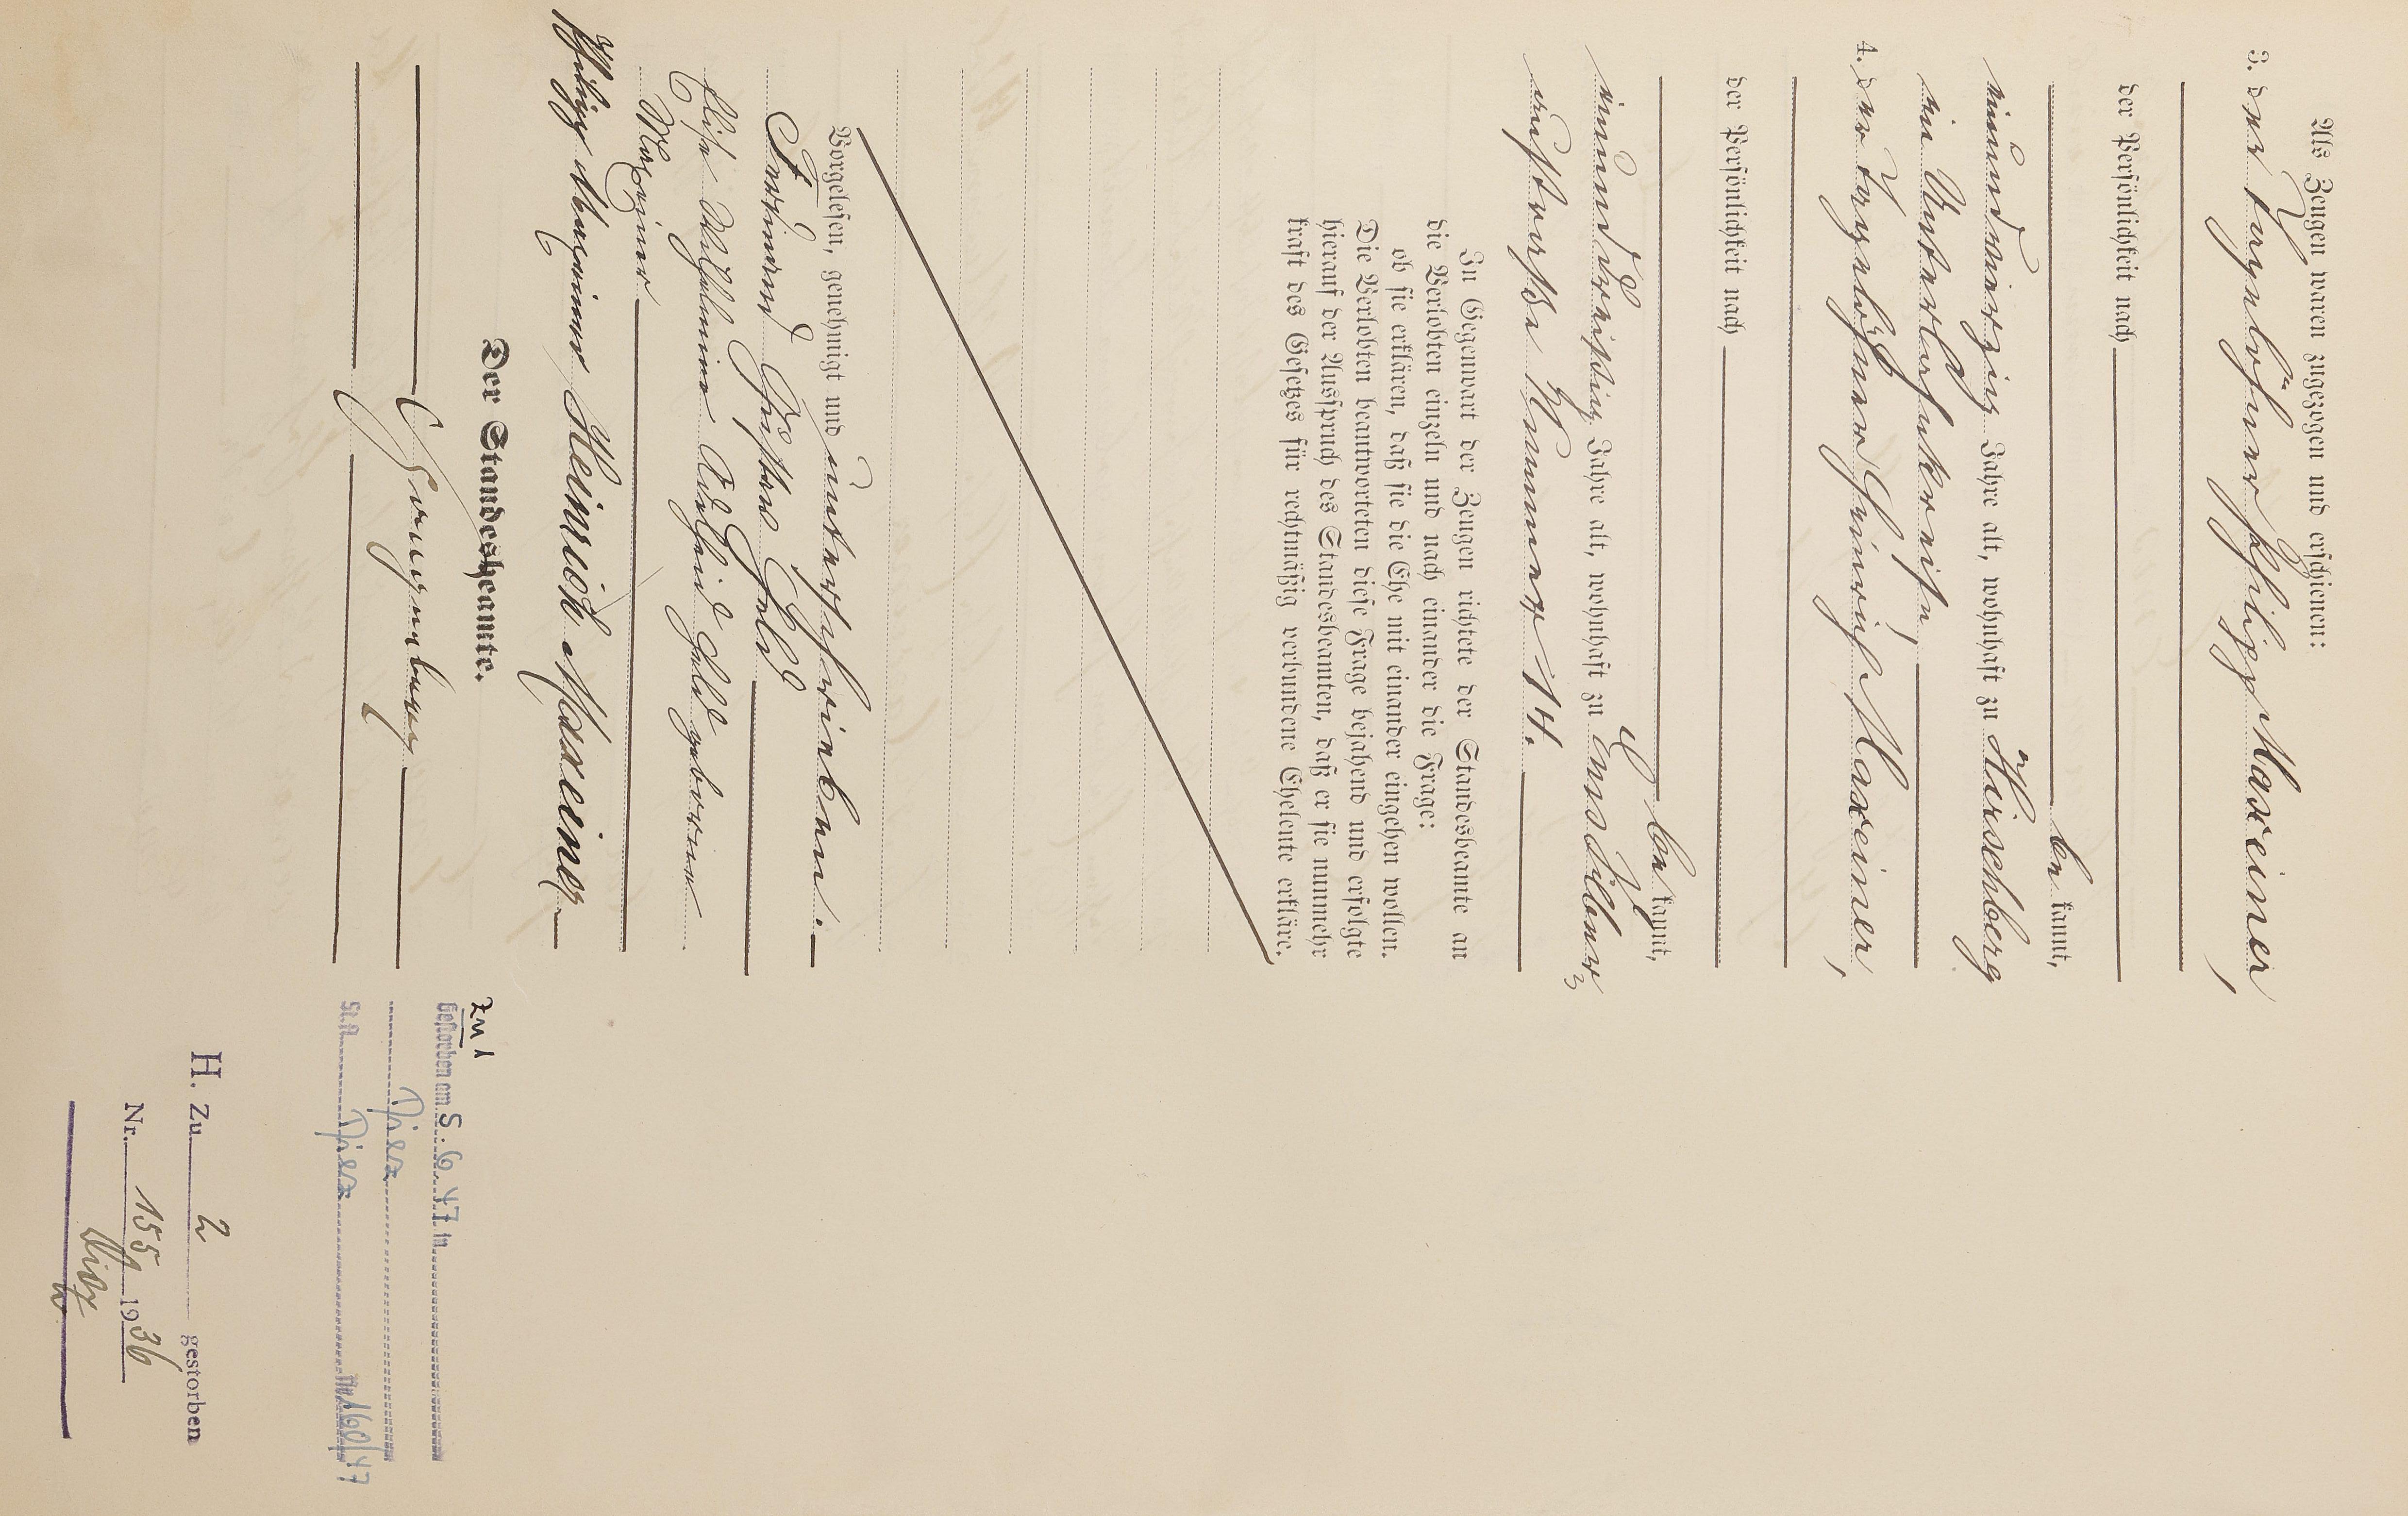 Als Zeugen waren zugezogen und erschienen:
3. der Tagelöhner Philipp Maxeiner,
der Persönlichkeit nach
be kannt,
einundvierzig Jahre alt, wohnhaft zu Hirschberg
im Unterlahnkreise,
4. der Tagelöhner Heinrich Maxeiner,
der Persönlichkeit nach
be kannt,
einunddreißig Jahre alt, wohnhaft zu
Nummer 14.
In Gegenwart der Zeugen richtete der Standesbeamte an
die Verlobten einzeln und nach einander die Frage:
ob sie erklären, daß sie die Ehe mit einander eingehen wollen.
Die Verlobten beantworteten diese Frage bejahend und erfolgte
hierauf der Ausspruch des Standesbeamten, daß er sie nunmehr
kraft des Gesetzes für rechtmäßig verbundene Eheleute erkläre.
Vorgelesen, genehmigt und unterschrieben.
Wilhelmine geborene
Maxeiner
Philipp Maxeiner Heinrich Maxeiner
Der Standesbeamte.
Zu 1
Gestorben am 5.6.47 in
Diez
St.A. Diez Nr. 160/47
H. Zu 2 gestorben
Nr. 155 1936
Diez